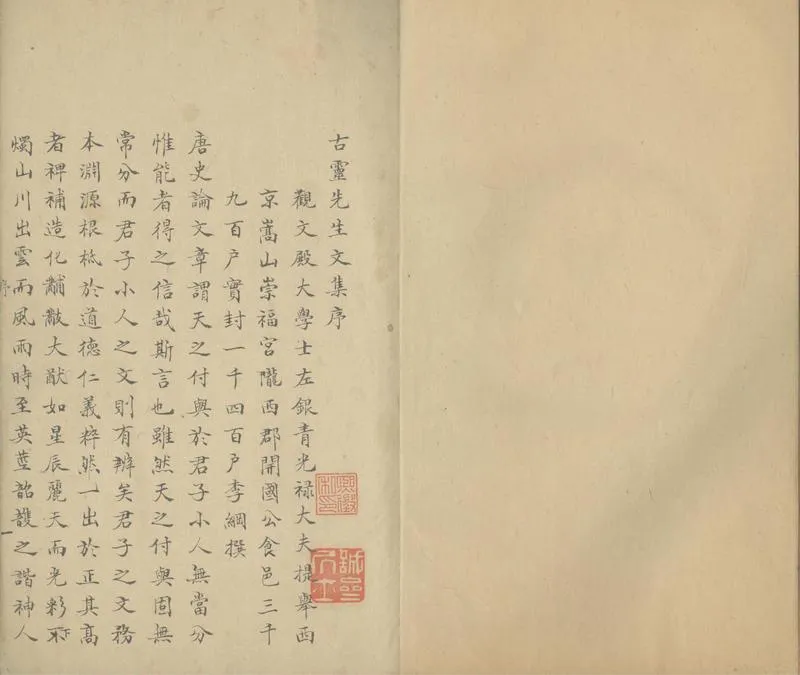 古靈先生文集序
觀文殿大學士左銀青光禄大夫提舉西
京嵩山崇福宮隴西郡開國公食邑三千
九百户實封一千四百户李綱撰
唐史論文章謂天之付與於君子小人無當分
惟能者得之信哉斯言也雖然天之付與固無
常分而君子小人之文則有辨矣君子之文務
本淵源根柢於道德仁義粹然一出於正其高
者裨補造化黼黻大猷如星辰麗天而光彩下
燭山川出雲而風雨時至英莖韶頀之諧神人
序
一